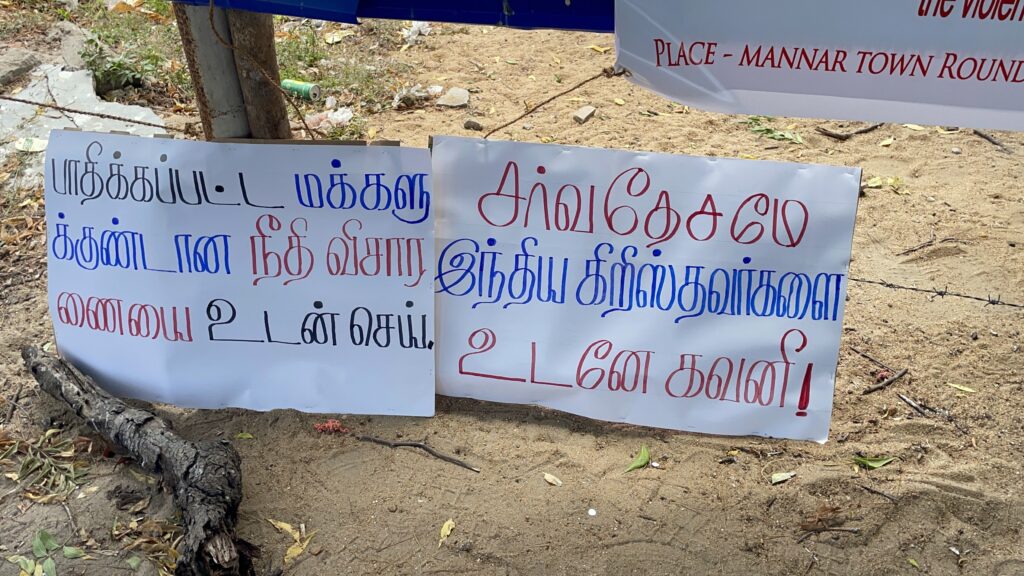 the violen
PLACE - MANNAR TOWN ROUND
பாதிக்கப்பட்ட மக்களு
க்குண்டான நீதி விசார
ணையை உடன் செய்.
சர்வதேசமே
இந்திய கிறிஸ்தவர்களை
உடனே கவனி!